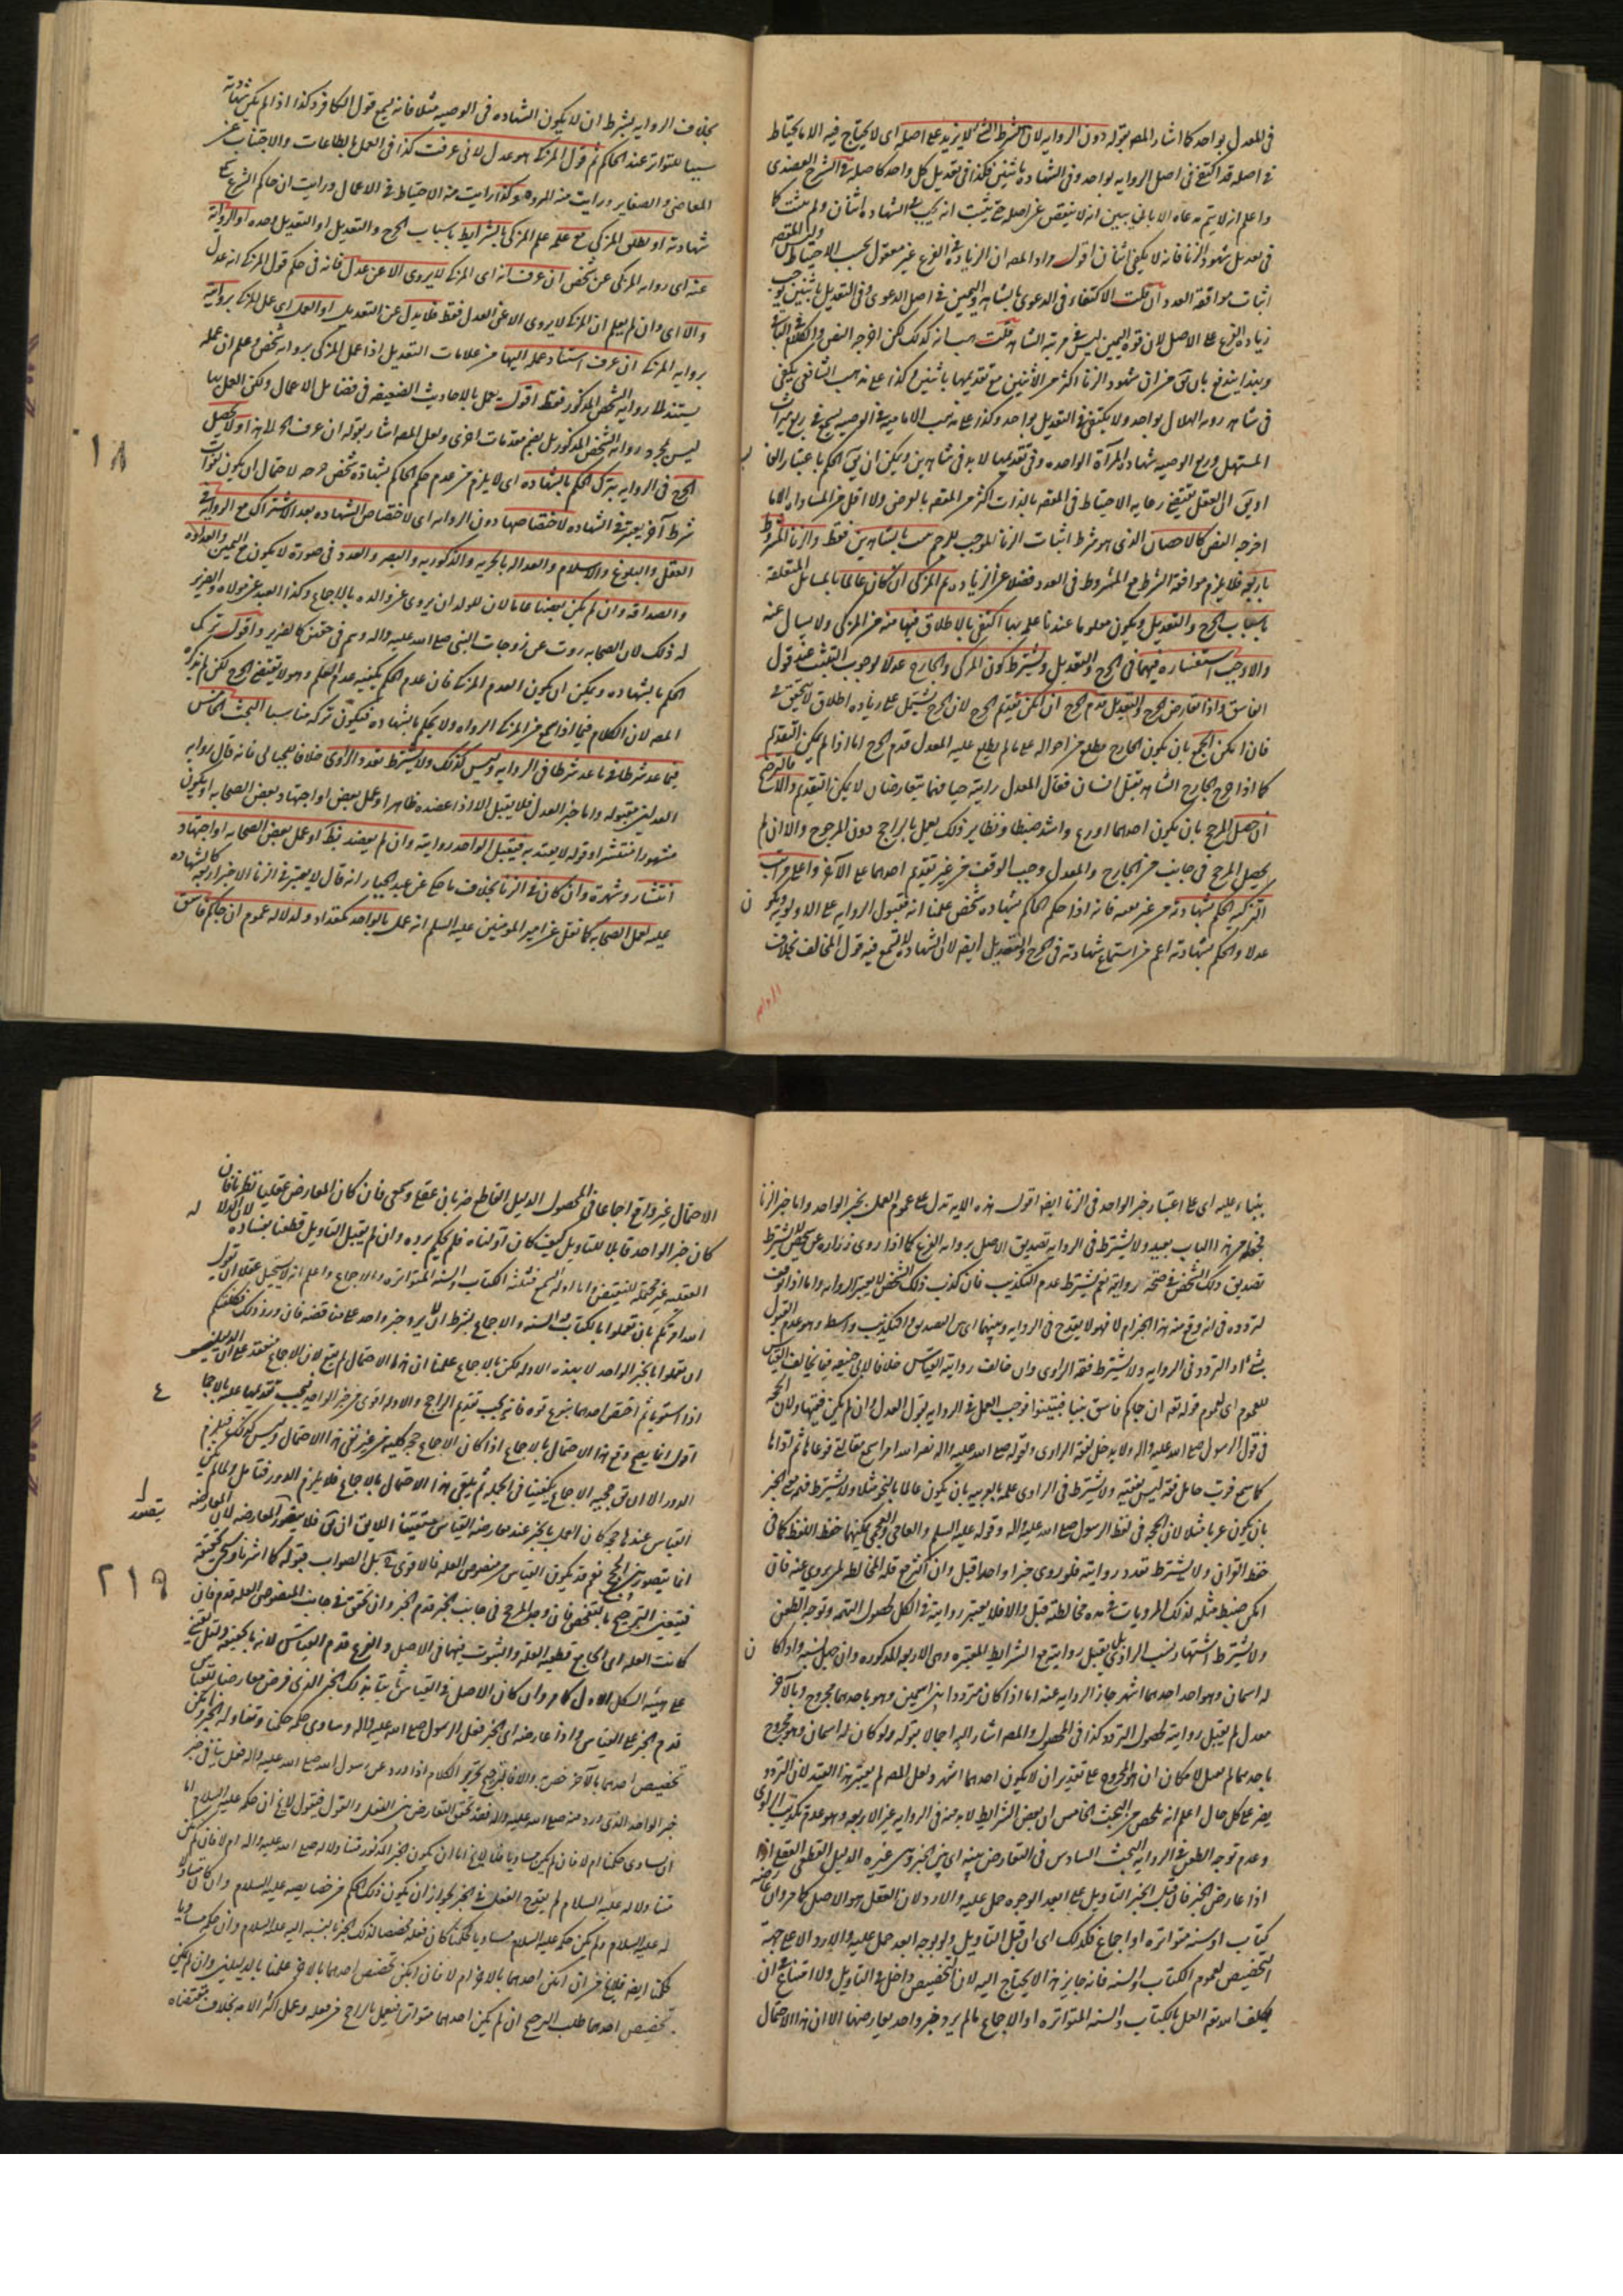 فى المعدل بواحد كما اشار المصر بقوله دون الرواية لان الشرط الشئ لا يزيد على اصله اى لا يحتاج فيه الا ما يحتاط
فى اصله قد اكتفى فى اصل الرواية بواحد وفى الشهادة باثنين فكذا فى تعديل كل واحد كما صله فى الشرح العضدى
واعلم انه لا يتم مدعاه الا بان يبين انه لا ينقص عن اصله حتى يثبت انه يجب فى الشهادة اثنان ولم يثبت كما
فى تعديل شهود الزنا فانه لا يكفى اثنان اقول مراد المصر ان الزيادة فى الفرع غير معقول بحسب الاحتياط
اثبات موافقة العدد ان قلت الاكتفاء فى الدعوى بالشاهد واليمين فى اصل الدعوى وفى التعديل باثنين يوجب
زيادة الفرع على الاصل لان قوة اليمين ليس فى مرتبة الشاهد قلت
وبهذا يندفع
فى شاهد رؤية الهلال بواحد ولا يكتفى فى التعديل بواحد وكذا على مذهب الامامية فى الوصية
المستهل وربع الوصية شهادة المرأة الواحدة وفى تعديلها لا بد فى شاهدين ويمكن ان يق الحكم باعتبار
او يق ان العقل يقتضى رعاية الاحتياط فى
اخرجه النص كالاحصان الذى هو شرط اثبات الزنا الموجب للرجم بالشاهدين فقط والزنا المشروط
باربعة فلا يلزم موافقة الشرط مع المشروط فى العدد فضلا عن الزيادة ثم المزكى ان كان عالما بالمسائل المتعلقة
باسباب الجرح والتعديل ويكون معلوما عندنا علمه بها اكتفى بالاطلاق فيها منه من المزكى ولا يسال عنه
والا وجب استفساره فيهما فى الجرح والتعديل ويشترط كون المزكى والجارح عدلا لوجوب التثبت عند قول
الفاسق واذا تعارض الجرح والتعديل قدم الجرح ان امكن تقديم الجرح لان الجرح يشتمل على زيادة اطلاق لا يتحقق فى
فان امكن الجمع بان يكون الجارح مطلع من احواله على ما لم يطلع عليه المعدل قدم الجرح اما اذا لم يمكن التقديم
كما اذا جرح الجارح الشاهد بقتل انسان فقال المعدل رايته حيا فهما يتعارضان لا يمكن التقديم والا فالترجيح
ان حصل المرجح بان يكون احدهما اورع واشد ضبطا ونظاير ذلك يعمل بالراجح دون المرجوح والا ان لم
يحصل المرجح فى جانب من الجارح والمعدل وجب الوقف من غير تقديم احدهما على الآخر واعلى مراتب
التزكية الحكم بشهادته من غير معه فانه اذا حكم الحاكم بشهادة شخص علمنا انه مقبول الرواية على الاولوية
عدلا والحكم بشهادته اعم من استماع شهادته فى الجرح والتعديل ايضا لان الشهادة لا يسمع فيه قول المخالف بخلاف
بخلاف الرواية بشرط ان لا يكون الشهادة فى الوصية مثلا فانه يسمع قول الكافر وكذا اذا لم يكن شهادته
سببا للتواتر عند الحاكم ثم قول المزكى هو عدل لانى عرفت كذا فى العمل بالطاعات والاجتناب عن
المعاصى والصغاير ورايت منه المروة وكذا رايت منه الاحتياط فى الاعمال ورايت ان حاكم الشرع
شهادته او يطلق المزكى مع علمه علم المزكى بالشرايط باسباب الجرح والتعديل او التعديل وحده او الرواية
عنه اى رواية المزكى عن شخص ان عرف انه اى المزكى لا يروى الا عن عدل فانه فى حكم قول المزكى انه عدل
والا اى وان لم يعلم ان المزكى لا يروى الا عن العدل فقط فلا يدل عن التعديل او العمل اى عمل المزكى بروايته
برواية المزكى ان عرف استناد عمله اليها من علامات التعديل اذا عمل المزكى برواية شخص وعلم ان عمله
يستند الى رواية الشخص المذكور فقط اقول يعمل بالاحاديث الضعيفة فى فضايل الاعمال ولكن العمل بها
ليس بمجرد رواية الشخص المذكور بل بضم مقدمات اخرى ولعل المصر اشار بقوله ان عرف الى هذا ولا يحصل
الجرح فى الرواية بترك الحكم بالشهادة اى لا يلزم من عدم حكم الحاكم بشهادة شخص جرحه لاحتمال ان يكون فوات
شرط آخر يعتبر فى الشهادة لاختصاصها دون الرواية اى لاختصاص الشهادة بعد الاشتراك مع الرواية فى
العقل والبلوغ والاسلام والعدالة بالحرية والذكورية والبصر والعدد فى صورة لا يكون مع اليمين والعداوة
والصداقة وان لم يكن بعضها عاما لان للولد ان يروى عن والده بالاجماع وكذا العبد عن مولاه والضرير
له ذلك لان الصحابة روت عن زوجات النبى صلى الله عليه وآله وسلم فى حقهن كالضرير واقول ترك
الحكم بالشهادة ويمكن ان يكون لعدم المزكى فان عدم الحكم يكفيه عدم العلم وهو لا يقتضى الجرح لكن لم يذكره
المصر لان الكلام فيما اذا سمع من المزكى الرواة ولا يحكم بالشهادة فيكون تركه مناسبا البحث الخامس
فيما عد شرطا فى ما عد شرطا فى الرواية وليس كذلك ولا يشترط تعدد الراوى خلافا للجبائى فانه قال رواية
العدلين مقبولة واما خبر العدل فلا يقبل الا اذا عضده ظاهر او عمل بعض او اجتهاد بعض الصحابة او يكون
مشهودا منتشرا وقوله لا يعتد به فيقبل الواحد روايته وان لم يعضد بظ او عمل بعض الصحابة او اجتهاد
انتشار وشهرة وان كان فى الزنا بخلاف ما حكى عن عبد الجبار انه قال لا يعتبر فى الزنا الا خبر اربعة كالشهادة
عليه لعمل الصحابة كما نقل عن امير المومنين عليه السلام انه عمل بالواحد كمقداد ولدلالة عموم ان جاءكم فاسق
١٨
بنباء عليه اى على اعتبار خبر الواحد فى الزنا ايضا اقول هذه الآية تدل على عموم العمل بخبر الواحد واما خبر الزنا
بخطره من هذا الباب بعيد ولا يشترط فى الرواية تصديق الاصل برواية الفرع كما اذا روى زرارة عن شخص لا يشترط
تصديق ذلك الشخص فى صحة روايته نعم يشترط عدم التكذيب فان كذب ذلك الشخص لا يعتبر الرواية واما اذا توقف
له تردد فى انه وقع منه هذا الخبر ام لا فهو لا يقدح فى الرواية وبينهما اى بين التصديق والتكذيب واسطة وهو عدم القبول
التردد فى الرواية ولا يشترط فقه الراوى وان خالف روايته القياس خلافا لابى حنيفة فيما يخالف القياس
للعموم اى لعموم قوله تعه ان جاءكم فاسق بنباء فتبينوا فوجب العمل فى الرواية بقول العدل وان لم يكن فقيها ولان الحجة
فى قول الرسول صلى الله عليه وآله ولا يدخل لفقه الراوى ولقوله صلى الله عليه وآله نضر الله امرأ سمع مقالتى فوعاها ثم اداها
كما سمع فرب حامل فقه ليس بفقيه ولا يشترط فى الراوى علمه بالعربية بان يكون عالما بالنحو مثلا ولا يشترط فهمه معنى الخبر
بان يكون عربيا مثلا لان الحجة فى لفظ الرسول صلى الله عليه وآله وقوله عليه السلام والعامى والعجمى يمكنهما حفظ اللفظ كما فى
حفظ القرآن ولا يشترط تعدد روايته فلو روى خبرا واحدا قبل وان اكثر مع قلة المخالطة لمن يروى عنه فان
امكن ضبط مثله لذلك المرويات فى مدة مخالطته قبل والا فلا يعتبر روايته فى الكل لحصول التهمة وتوجه الطعن
ولا يشترط اشتهار نسب الراوى بل يقبل روايته مع الشرايط المعتبرة وهى الاربعة المذكورة وان جهل نسبه واذا كان
له اسمان وهو احد احدهما اشهر جاز الرواية عنه اما اذا كان مترددا بين اسمين وهو باحدهما مجروح وبالآخر
معدل لم يقبل روايته لحصول التردد كذا فى المحصول والمصر اشار اليه اجمالا بقوله ولو كان له اسمان وهو مجروح
باحدهما لم يعمل لامكان ان هو المجروح على تقدير ان لا يكون احدهما اشهر ولعل المصر لم يعتبر هذا القيد لان التردد
يضر على كل حال اعلم انه تلخص من البحث الخامس ان بعض الشرايط لا بد منه فى الرواية غير الاربعة وهو عدم تكذيب الراوى
وعدم توجه الطعن فى الرواية البحث السادس فى التعارض بينه اى بين الخبر وبين غيره الدليل القطعى العقلى
اذا عارض الخبر فان قبل الخبر التاويل على ابعد الوجوه حمل عليه والا رد لان العقل هو الاصل كما مر وان عارضه
كتاب او سنة متواترة او اجماع فكذلك اى ان قبل التاويل ولو بوجه ابعد حمل عليه والا رد الا على جهة
التخصيص لعموم الكتاب والسنة فانه جايز هذا لا يحتاج اليه لان التخصيص داخل فى التاويل ولا امتناع فى ان
يكلف الله تعه العمل بالكتاب والسنة المتواترة او الاجماع ما لم يرد خبر واحد يعارضهما الا ان هذا الاحتمال
الاحتمال غير واقع اجماعا فى المحصول الدليل القاطع ضربان عقلى وسمعى فان كان المعارض عقليا نظرنا فان
كان خبر الواحد قابلا للتاويل كيف كان اولناه فلم يحكم برده وان لم يقبل التاويل قطعنا بفساده لان الدلالة
العقلية غير محتملة للنقيض واما ادلة السمع فثلثة الكتاب والسنة المتواترة والاجماع واعلم انه لا يستحيل عقلا ان يقول
الله امرتكم بان تعملوا بالكتاب والسنة والاجماع بشرط ان لا يرد خبر واحد على مناقضه فان ورد ذلك فكلفتكم
ان تعملوا بالخبر الواحد لا بهذه الادلة لكن بالاجماع علمنا ان هذا الاحتمال لم يقع لان الاجماع منعقد على ان الدليلين
اذا استويا ثم اختص احدهما بنوع قوة فانه يجب تقديم الراجح والادلة اقوى من خبر الواحد فيجب تقديمها عليه بالاجماع
اقول انما يصح دفع هذا الاحتمال بالاجماع اذا كان الاجماع حجة كلية من غير نفى هذا الاحتمال وليس كذلك فيلزم
الدور الا ان يق حجية الاجماع يكفينا فى الجملة ثم يلغى هذا الاحتمال بالاجماع فلا يلزم الدور فتامل ولما لم يكن
القياس عندنا حجة كان العمل بالخبر عند معارضة القياس متعينا اللايق ان يق فلا يتصور المعارضة لان المعارضة
انما يتصور بين الحجج نعم قد يكون القياس منصوص العلة فالاقوى
فيتعين الترجيح بالتفحص فان وجد المرجح فى جانب الخبر قدم الخبر وان تحقق فى جانب المنصوص العلة قدم فان
كانت العلة اى الجامع قطعية العلة والثبوت فيهما فى الاصل والفرع قدم القياس لانه بالحقيقة دليل يقينى
على هيئة الشكل الاول كما مر وان كان الاصل فى القياس ثابتا بذلك الخبر الذى فرض معارضا للقياس
قدم الخبر على القياس واذا عارضه اى الخبر فعل الرسول صلى الله عليه وآله وساوى حكمه حكمنا وتناوله الخبر وامكن
تخصيص احدهما بالآخر خص به والا فالترجيح تحرير الكلام اذا ورد عن رسول الله صلى الله عليه وآله فعل ينافى خبر
خبر الواحد الذى ورد منه صلى الله عليه وآله فقد تحقق التعارض بين الفعل والقول فنقول لا يخ ان حكمه عليه السلام اما
ان يساوى حكمنا ام لا فان لم يكن مساويا فلا يخ اما ان يكون الخبر المذكور متناولا له صلى الله عليه وآله ام لا فان لم يكن
متناولا له عليه السلام لم يقدح الفعل فى الخبر لجواز ان يكون ذلك الحكم من خصايصه عليه السلام وان كان متناولا
له عليه السلام ولم يكن حكمه عليه السلام مساويا لحكمنا كان فعله مخصصا لذلك الخبر بالنسبة اليه عليه السلام وان حكمه مساويا
لحكمنا ايضا فلا يخ من ان امكن احدهما بالآخر ام لا فان امكن تخصيص احدهما بالآخر علمنا بالدليلين وان لم يمكن
تخصيص احدهما طلب الترجيح ان لم يكن احدهما متواترا فيعمل بالراجح فرفعله وعمل اكثر الامة بخلاف مقتضاه
٢١٩